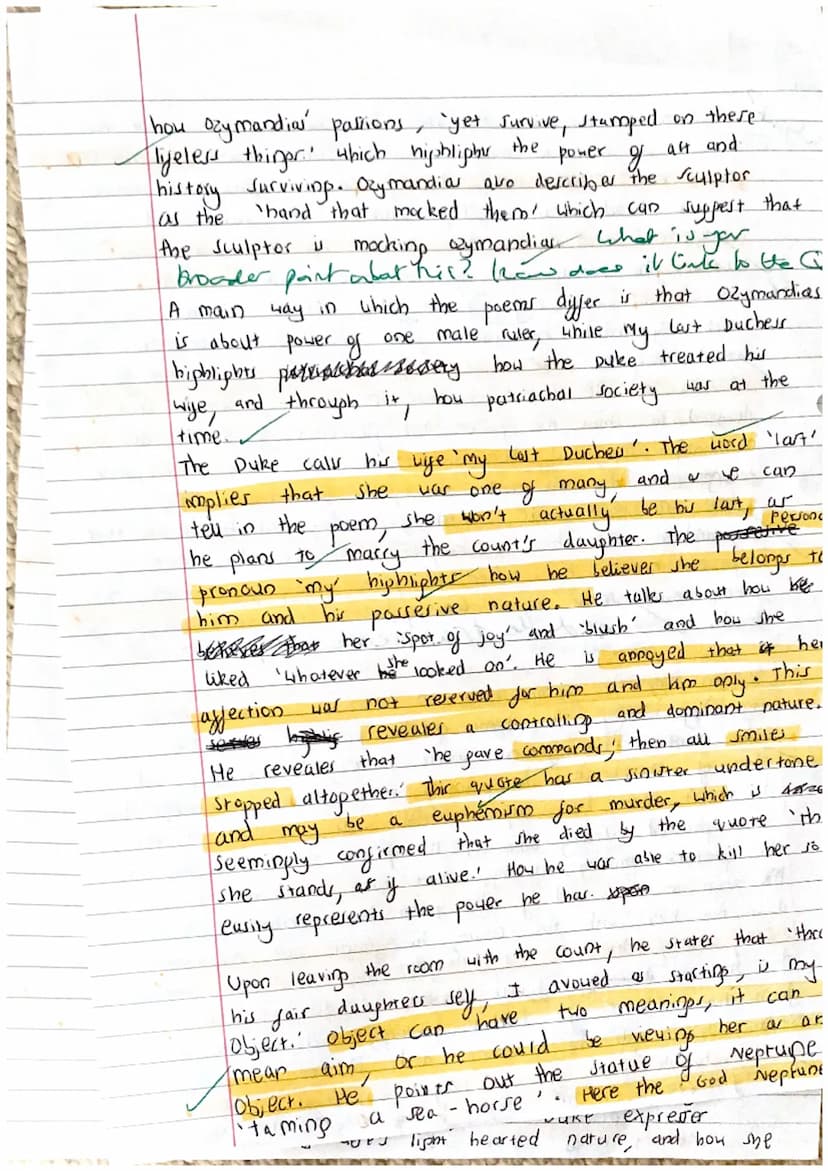 how Ozymandias' passions, 'yet survive, stamped on these
lifeless things.' which highlights the power of art and
history surviving. Ozymandias also describes the sculptor
as the 'hand that mocked them' which can suggest that
the sculptor is mocking ozymandias. What is your
broader point about this? How does it link to the Q
A main way in which the poems differ is that Ozymandias
is about power of one male ruler, while My Last Duchess
highlights how the Duke treated his
wife, and through it, how patriachal society was at the
time.
The Duke calls his wife 'My Last Duchess'. The word 'last'
implies that she was one of many, and as we can
tell in the poem, she won't actually be his last, as
he plans to marry the count's daughter. The Persona
pronoun 'my' highlights how he believes she belongs to
him and his possesive nature. He talks about how
her 'spot of joy' and 'blush' and how she
liked 'whatever she looked on'. He is annoyed that her
affection was not reserved for him and him only. This
reveales a controlling and dominant nature.
He reveales that 'he gave commands,' then all smiles
stopped altogether.' This quote has a sinister undertone
and may be a euphemism for murder, which is
seemingly confirmed that she died by the quote 'th
she stands, as if alive.' How he was able to kill her so
easily represents the power he has.
Upon leaving the room with the count, he states that 'thro
his fair daughters self, I avowed as starting, is my
Object.' Object can have two meanings, it can
mean aim, or he could be viewing her as an
Object. He points out the statue of Neptune
'taming a sea-horse'. Here the God Neptune
Duke expresses
light hearted nature, and how she